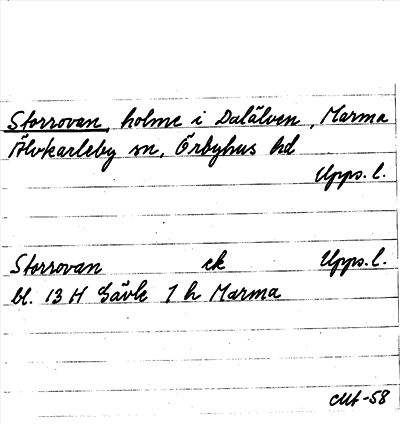 Storrovan, holme i Dalälven, Marma
Älvkarleby sn, Örbyhus hd
Upps. l.
Storrovan ek Upps. l.
bl. 13 H Gävle 1 h Marma
CMt-58